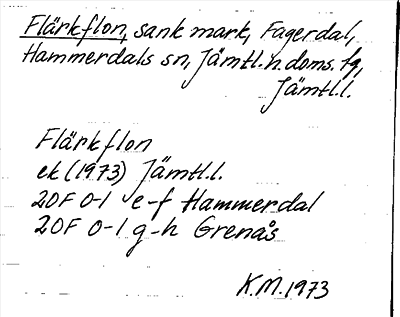 Flärkflon, sank mark, Fagerdal,
Hammerdals sn, Jämtl. n. doms. fg,
Jämtl. l.
Flärkflon
ek (1973) Jämtl. l.
20F 0-1 e-f Hammerdal
20F 0-1 g-h Grenås
K.M. 1973